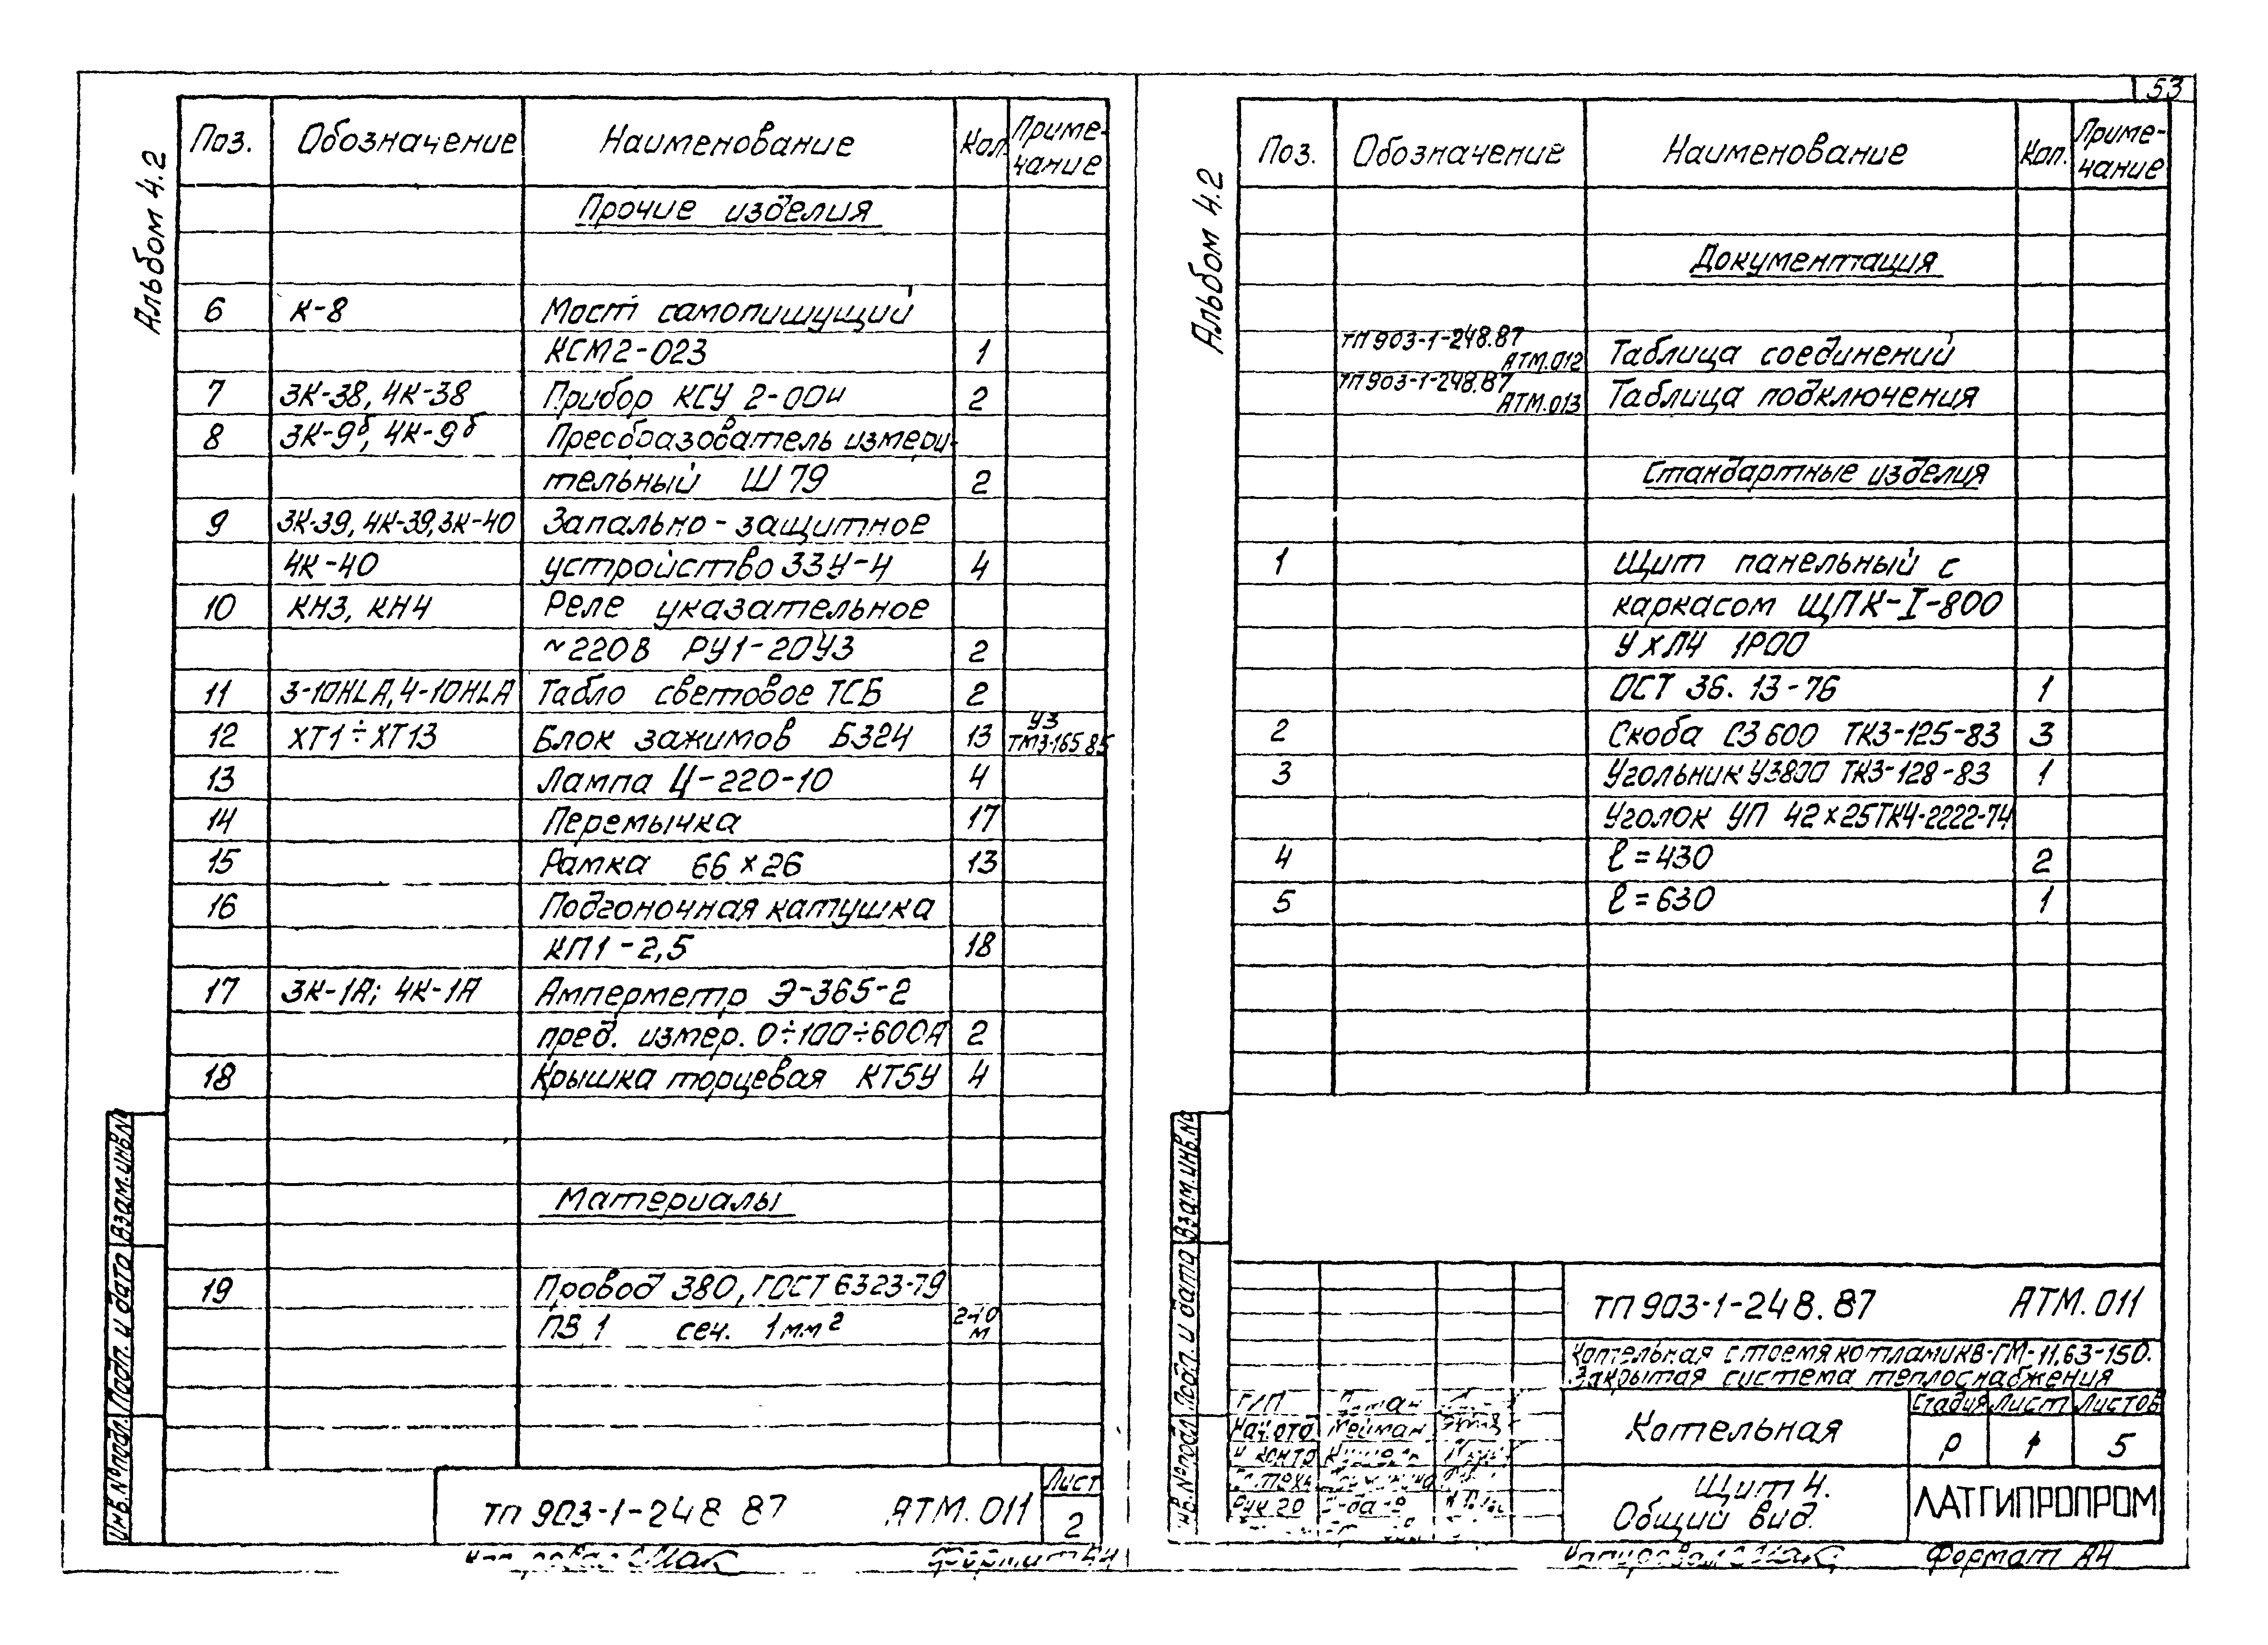 53
Альбом 4.2
Поз. Обозначение Наименование Кол. Приме-
чание
Прочие изделия
6 К-8 Мост самопишущий
КСМ2-023 1
7 3К-38, 4К-38 Прибор КСУ 2-004 2
8 3К-9б, 4К-9б Преобразователь измери-
тельный Ш 79 2
9 3К-39, 4К-39, 3К-40 Запально-защитное
4К-40 устройство ЗЗУ-4 4
10 КН3, КН4 Реле указательное
~220В РУ1-20У3 2
11 3-10HLA, 4-10HLA Табло световое ТСБ 2
12 ХТ1÷ХТ13 Блок зажимов Б324 13 У3
ТМ3-165 85
13 Лампа Ц-220-10 4
14 Перемычка 17
15 Рамка 66×26 13
16 Подгоночная катушка
КП1-2,5 18
17 3К-1А; 4К-1А Амперметр Э-365-2
пред. измер. 0÷100÷600А 2
18 Крышка торцевая КТ5У 4
Материалы
19 Провод 380, ГОСТ 6323-79
ПВ 1 сеч. 1мм² 240
м
Взам.инв.№
Подп. и дата
Инв.№подл.
ТП 903-1-248 87 АТМ.011
Лист
2
Альбом 4.2
Поз. Обозначение Наименование Кол. Приме-
чание
Документация
ТП 903-1-248.87
АТМ.012 Таблица соединений
ТП 903-1-248.87
АТМ.013 Таблица подключения
Стандартные изделия
1 Щит панельный с
каркасом ЩПК-I-800
УХЛ4 1Р00
ОСТ 36. 13-76 1
2 Скоба С3 600 ТК3-125-83 3
3 Угольник У3800 ТК3-128-83 1
Уголок УП 42×25 ТК4-2222-74
4 ℓ=430 2
5 ℓ=630 1
Взам.инв.№
Подп. и дата
Инв.№подл.
ТП 903-1-248.87 АТМ.011
Котельная с тремя котлами КВ-ГМ-11,63-150.
Закрытая система теплоснабжения
ГИП
Нач.отд. Нейман
Н контр
Котельная
Стадия Лист Листов
Р 1 5
Щит 4.
Общий вид.
ЛАТГИПРОПРОМ
Формат А4